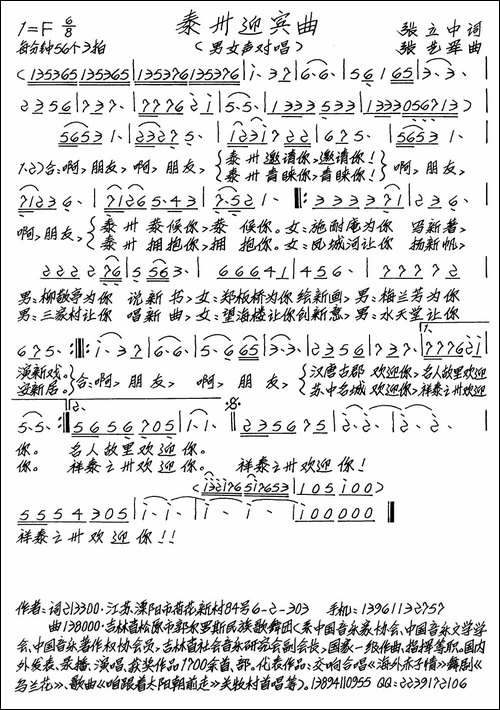 泰州迎宾曲
1=F 6/8
张立中词
每分钟56个3拍
(男女声对唱)
张艺军曲
(135365 135365|135376 135376|i·37|6·6·|561 65|3·3·|
2356|737·|7776 2i|5·5·|1333 533|13330567 13)
5653 1·|2327 5·|i23i 722|675·|5653 1·|
1.2)合:啊,朋友,啊,朋友,{泰州邀请你,邀请你! 啊,朋友,
泰州青睐你,青睐你!
7123 6·|7126 5·43|7·52 1·‖:3333 71|236·|
啊,朋友,{泰州恭候你,恭候你。女:施耐庵为你 写新著,
泰州拥抱你,拥抱你。女:凤城河让你 扬新帆,
2222 76|5 563·|6664 1|456·|7777 2|
男:柳敬亭为你 说新书,女:郑板桥为你绘新画,男:梅兰芳为你
男:三家村让你 唱新曲,女:望海楼让你创新意,男:水天堂让你
675·:‖:i·37|6·6·|5·665|3·3·|2356|737·|7776 2i|
演新戏。}合:啊,朋友,啊,朋友,{汉唐古郡 欢迎你,名人故里欢迎
安新居。 苏中名城 欢迎你,祥泰之州欢迎
5·5·:‖5656 705|i·i·|2356 75|2·2·|2·2·|
你。 名人故里欢迎你。
你。 祥泰之州欢迎你。 祥泰之州欢迎你!
(132176 517653|105 i00)
5554 305|i·i·|i· i·|i00000‖
祥泰之州欢迎你!!
作者:词213300·江苏溧阳市荷花新村84号6-2-303 手机:13961132757
曲138000·吉林省松原市郭尔罗斯民族歌舞团(系中国音乐家协会、中国音乐文学学
会、中国音乐著作权协会员,吉林省社会音乐研究会副会长,国家一级作曲、指挥等职。国内
外发表、录播、演唱、获奖作品1700余首、部。代表作品:交响合唱《海外赤子情》舞剧《
乌兰花》、歌曲《咱跟着太阳朝前走》关牧村首唱等)。13894110955 QQ:2239172106